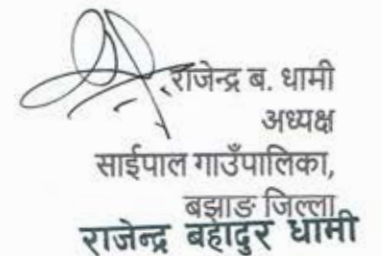 राजेन्द्र ब. धामी
अध्यक्ष
साईपाल गाउँपालिका,
बझाङ जिल्ला
राजेन्द्र बहादुर धामी